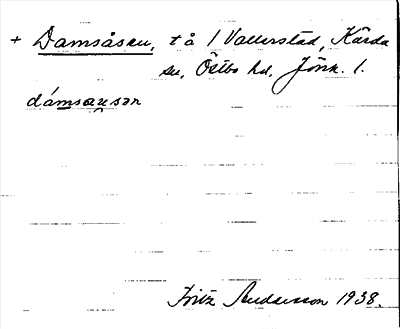 + Damsåsen, t å / Vallerstad, Kärda
sn, Östbo hd, Jönk. l.
dámsau̯sən
Fritz Andersson 1938.